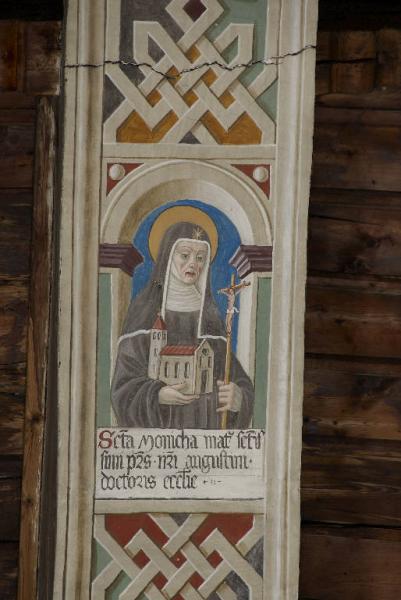 Scta Monicha mat̄ sctis
simi pr̄s nr̄i augustini ·
doctoris eccl̄ie